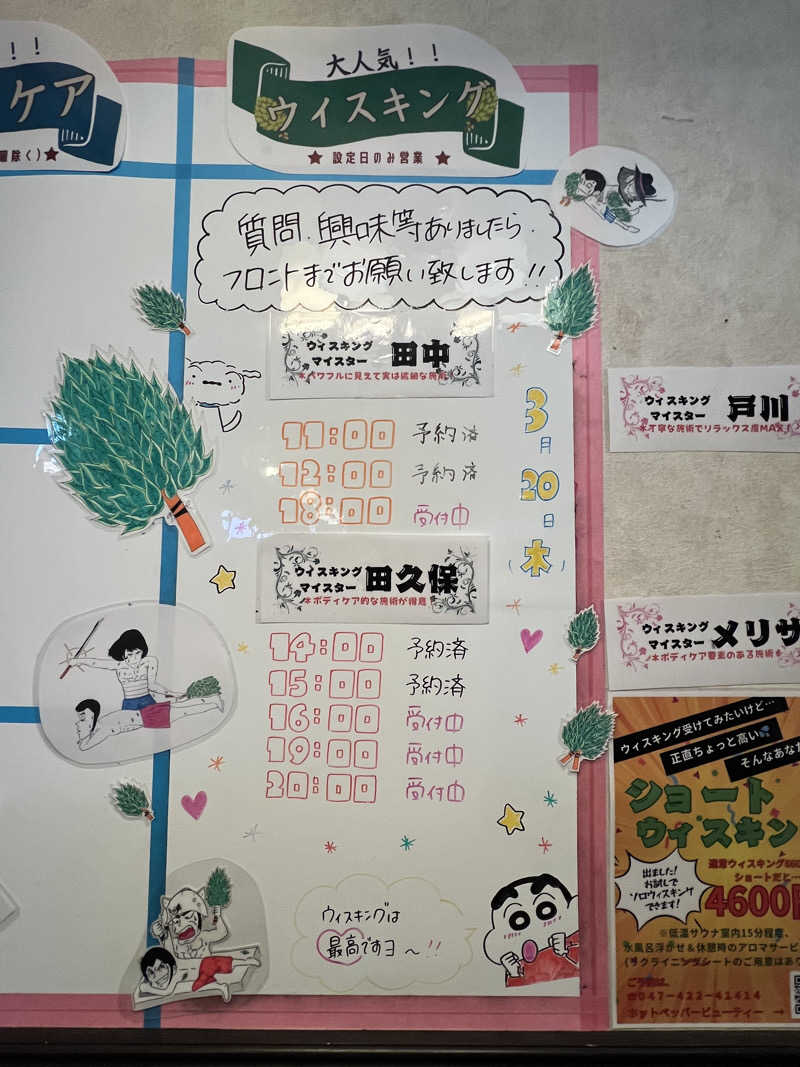 ！！
ケア
除く）★
大人気！！
ウィスキング
★ 設定日のみ営業 ★
質問、興味等ありましたら、
フロントまでお願い致します!!
ウィスキング
マイスター 田中
＊パワフルに見えて実は繊細な施術＊
11:00 予約済
12:00 予約済
18:00 受付中
3
月
20
日
(木)
ウィスキング
マイスター 田久保
＊ボディケア的な施術が得意＊
14:00 予約済
15:00 予約済
16:00 受付中
19:00 受付中
20:00 受付中
ウィスキングは
最高ですヨ〜!!
ウィスキング
マイスター 戸川
＊丁寧な施術でリラックス度MAX！
ウィスキング
マイスター メリサ
＊ボディケア要素のある施術＊
ウィスキング受けてみたいけど…
正直ちょっと高い
そんなあなた
ショート
ウィスキン
通常ウィスキング660
ショートだと…
4600円
出ました!
お試しで
ソロウィスキング
できます!
※低温サウナ室内15分程度、
水風呂浮かせ＆休憩時のアロマサービ
(リクライニングシートのご用意はあり
ご予約は、
☎047-422-41414
ホットペッパービューティー →